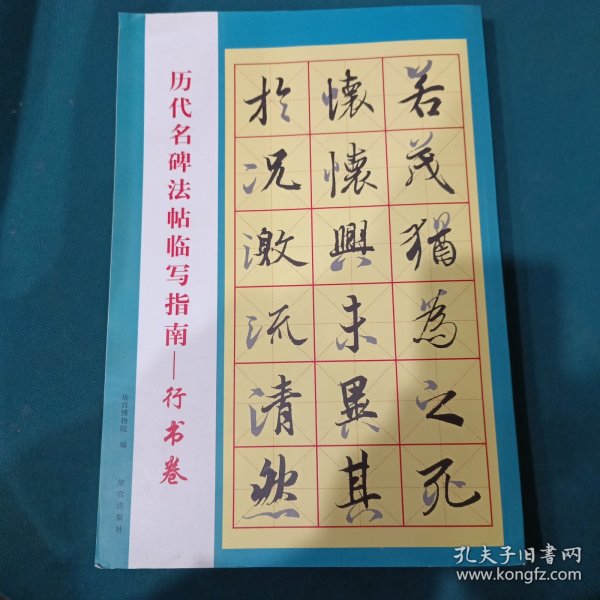 历代名碑法帖临写指南—行书卷
故宫博物院 编
故宫出版社
若茂犹為之死
懷懷興未異其
於况激流清然
孔夫子旧书网
www.kongfz.com